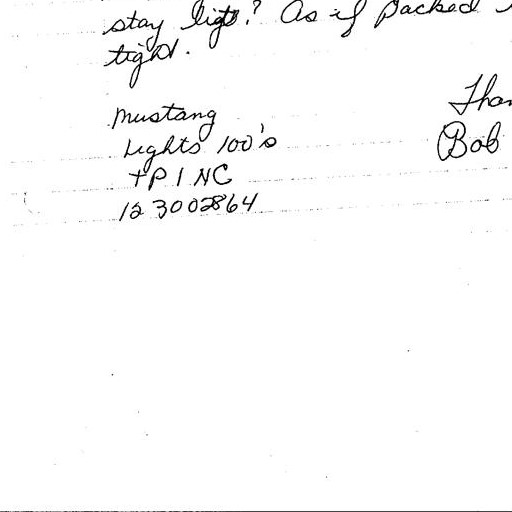 stay light? As if packed
tight.
Mustang
Lights 100's
TPINC
12 3002864
Bob